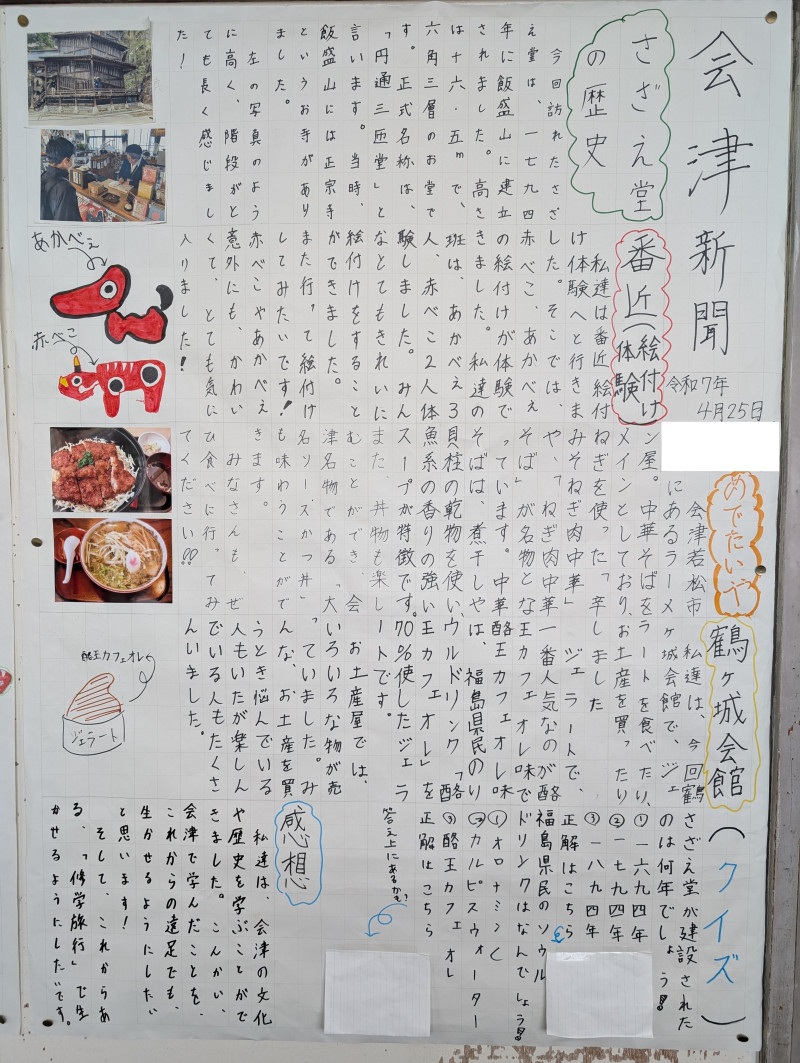 会津新聞
令和7年
4月25日
さざえ堂
の歴史
今回訪れたさざ
え堂は、一七九四
年に飯盛山に建立
されました。高さ
は十六・五mで、
六角三層のお堂で
す。正式名称は、
「円通三匝堂」と
言います。当時、
飯盛山には正宗寺
というお寺があり
ました。
左の写真のよう
に高く、階段がと
ても長く感じまし
た！
番匠(絵付け体験)
私達は番匠絵付
け体験へと行きま
した。そこでは、
赤べこ、あかべぇ
の絵付けが体験で
きました。私達の
班は、あかべぇ3
人、赤べこ2人体
験しました。みん
なとてもきれいに
絵付けをすること
ができました。
また行って絵付け
してみたいです！
赤べこやあかべぇ
意外にも、かわい
くて、とても気に
入りました！
あかべぇ
赤べこ
めでたいや
会津若松市
にあるラーメ
ン屋。中華そばを
メインとしており、
ねぎを使った「辛
みそねぎ肉中華」
や、「ねぎ肉中華
そば」が名物とな
っています。中華
そばは、煮干しや
貝柱の乾物を使い、
魚系の香りの強い
スープが特徴です。
また、丼物も楽し
むことができ、会
津名物である「大
名ソースかつ丼」
も味わうことがで
きます。
みなさんも、ぜ
ひ食べに行ってみ
てください!!
鶴ヶ城会館
私達は、今回鶴
ヶ城会館で、ジェ
ラートを食べたり、
お土産を買ったり
しました
ジェラートで、
一番人気なのが酪
王カフェオレ味で
酪王カフェオレ味
は、福島県民のソ
ウルドリンク「酪
王カフェオレ」を
70%使したジェラ
ートです。
お土産屋では、
いろいろな物が売
っていました。み
んな、お土産を買
うとき悩んでいる
人もいたが楽しん
でいる人もたくさ
んいました。
酪王カフェオレ
ジェラート
(クイズ)
さざえ堂が建設された
のは何年でしょう!!
①一六九四年
②一七九四年
③一八九四年
正解はこちら
福島県民のソウル
ドリンクはなんでしょう!!
①オロナミンC
②カルピスウォーター
③酪王カフェオレ
正解はこちら
答え上にあるかも？
感想
私達は、会津の文化
や歴史を学ぶことがで
きました。こんかい、
会津で学んだことを、
これからの遠足でも、
生かせるようにしたい
と思います！
そして、これからあ
る、「修学旅行」で生
かせるようにしたいです。